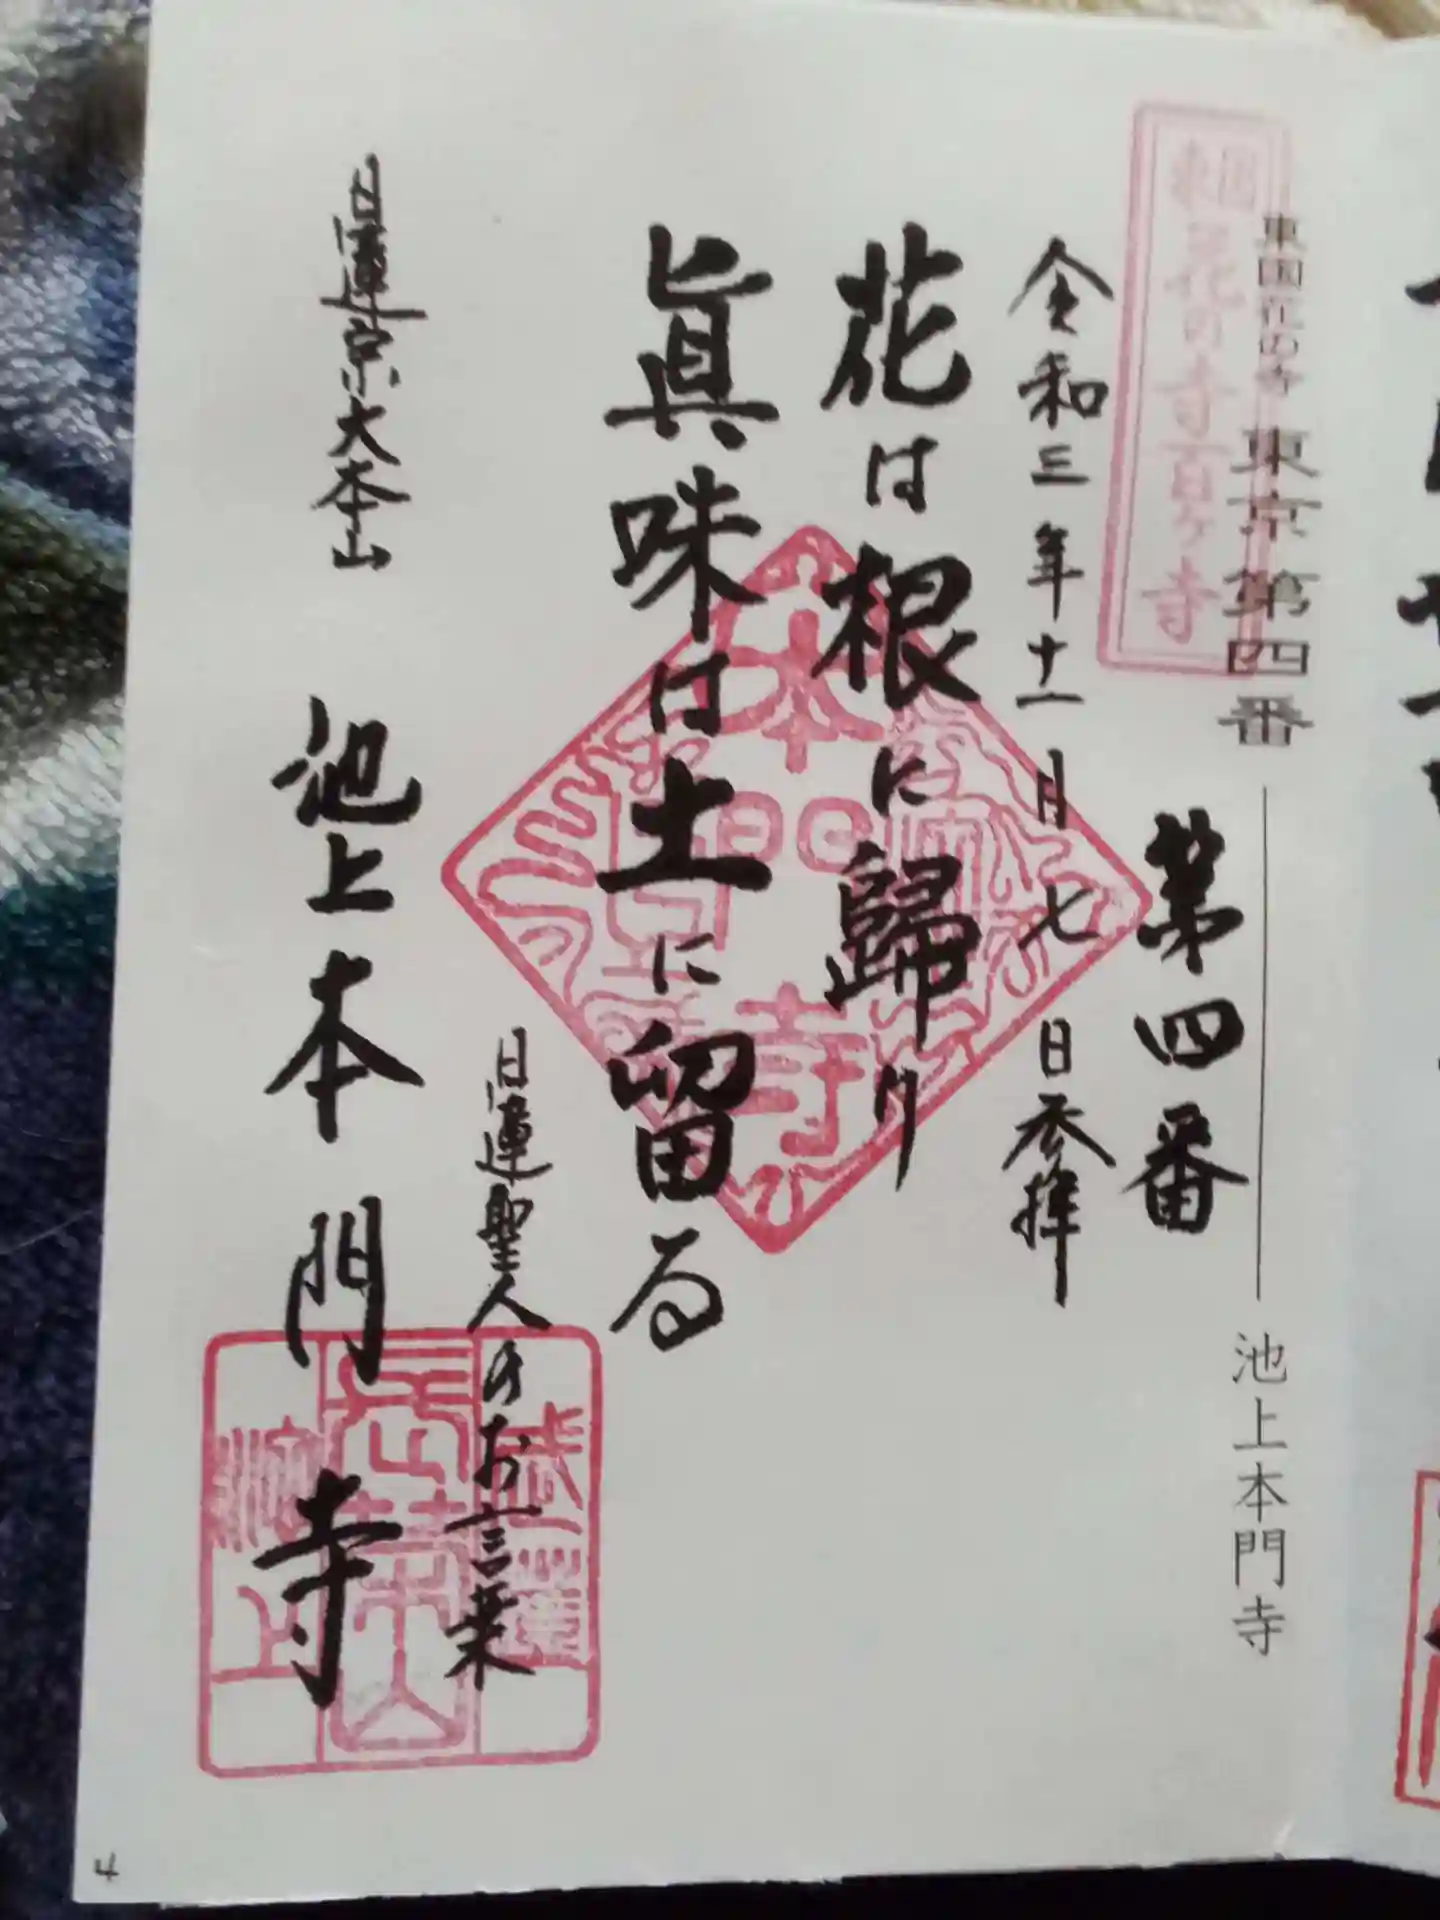 東国花の寺 東京 第四番 池上本門寺
東国花の寺百ヶ寺
第四番
令和三年十一月七日参拝
花は根に歸り
眞味は土に留る
日蓮聖人のお言葉
日蓮宗大本山
池上本門寺
本
寺
池上
4